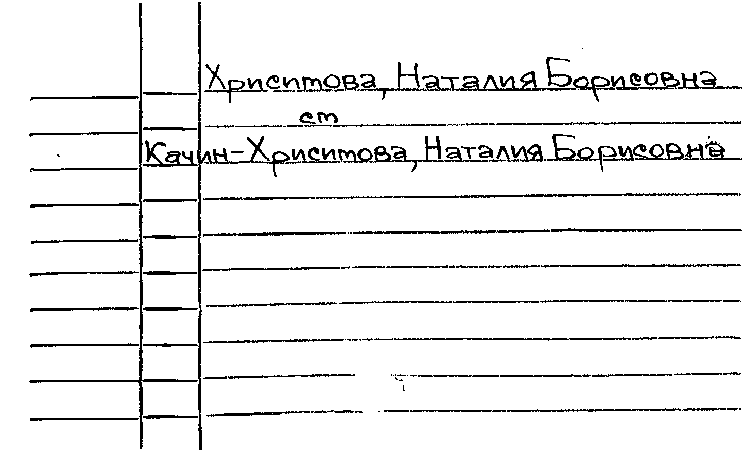 Христова, Наталия Борисовна
ст
Качин-Христова, Наталия Борисовна